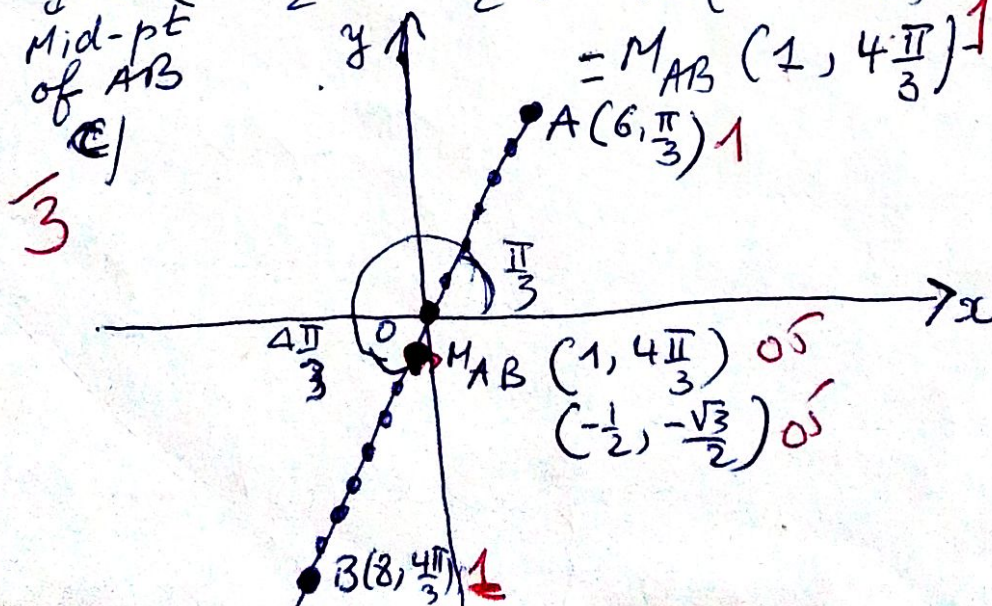 Mid-pt
of AB
y
= M_AB (1, 4π/3) 1
c)
A(6, π/3) 1
3
π/3
x
4π/3
O
M_AB (1, 4π/3) 05
(-1/2, -√3/2) 05
B(8, 4π/3) 1